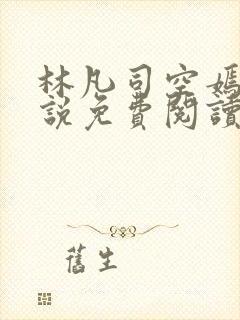 林凡司空嫣
說免費閱讀
舊生